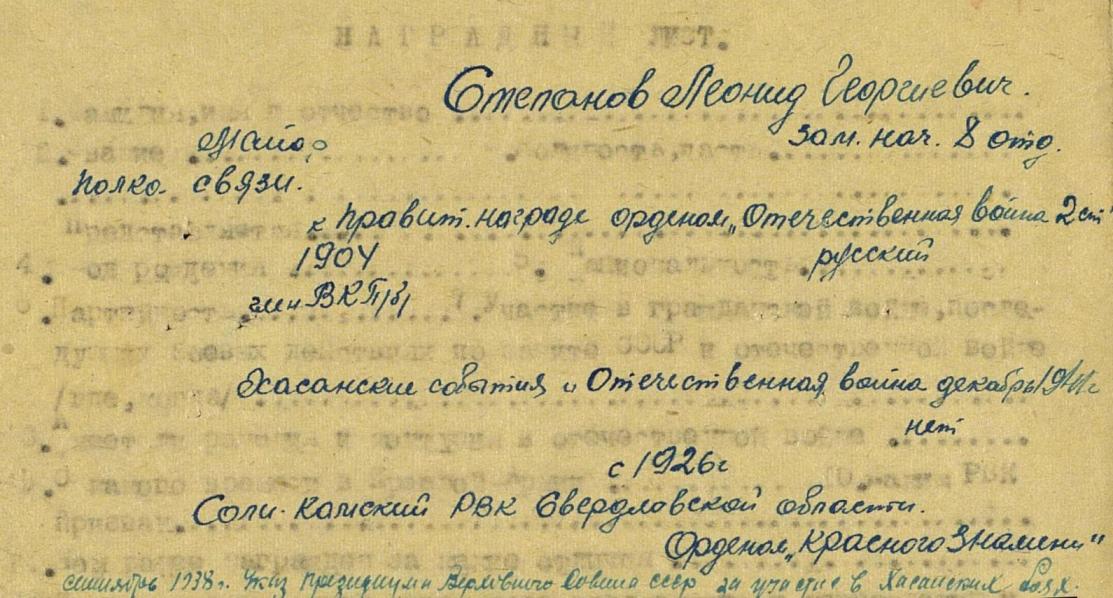 НАГРАДНЫЙ ЛИСТ.
1. Фамилия, имя и отчество Степанов Леонид Георгиевич.
2. Звание Майор 3. Должность, часть зам. нач. 8 отд.
полка связи.
Представляется к правит. награде орденом „Отечественная война 2 ст"
4. Год рождения 1904 5. Национальность русский
6. Партийность член ВКП/б/ 7. Участие в гражданской войне, после-
дующих боевых действиях по защите СССР и отечественной войне
/где, когда/ Хасанские события и Отечественная война декабрь 1941г
8. Имеет ли ранения и контузии в отечественной войне нет
9. С какого времени в Красной Армии с 1926г 10. Каким РВК
призван Соли-Камский РВК Свердловской области.
Чем ранее награжден за какие отличия Орденом „Красного Знамени"
сентябрь 1938г. Указ Президиума Верховного Совета СССР за участие в Хасанских боях.